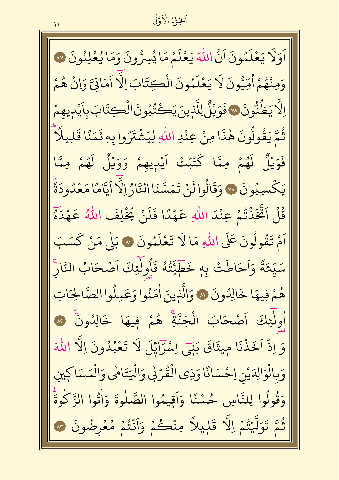 الجزء الاول
١١
اَوَلَا يَعْلَمُونَ اَنَّ اللّٰهَ يَعْلَمُ مَا يُسِرُّونَ وَمَا يُعْلِنُونَ ﴿٧٧﴾
وَمِنْهُمْ اُمِّيُّونَ لَا يَعْلَمُونَ الْكِتَابَ اِلَّٓا اَمَانِيَّ وَاِنْ هُمْ
اِلَّا يَظُنُّونَ ﴿٧٨﴾ فَوَيْلٌ لِلَّذٖينَ يَكْتُبُونَ الْكِتَابَ بِاَيْدٖيهِمْ
ثُمَّ يَقُولُونَ هٰذَا مِنْ عِنْدِ اللّٰهِ لِيَشْتَرُوا بِهٖ ثَمَنًا قَلٖيلًاؕ
فَوَيْلٌ لَهُمْ مِمَّا كَتَبَتْ اَيْدٖيهِمْ وَوَيْلٌ لَهُمْ مِمَّا
يَكْسِبُونَ ﴿٧٩﴾ وَقَالُوا لَنْ تَمَسَّنَا النَّارُ اِلَّٓا اَيَّامًا مَعْدُودَةًؕ
قُلْ اَتَّخَذْتُمْ عِنْدَ اللّٰهِ عَهْدًا فَلَنْ يُخْلِفَ اللّٰهُ عَهْدَهُٓ
اَمْ تَقُولُونَ عَلَى اللّٰهِ مَا لَا تَعْلَمُونَ ﴿٨٠﴾ بَلٰى مَنْ كَسَبَ
سَيِّئَةً وَاَحَاطَتْ بِهٖ خَطٖٓيـَٔتُهُ فَاُولٰٓئِكَ اَصْحَابُ النَّارِۚ
هُمْ فٖيهَا خَالِدُونَ ﴿٨١﴾ وَالَّذٖينَ اٰمَنُوا وَعَمِلُوا الصَّالِحَاتِ
اُولٰٓئِكَ اَصْحَابُ الْجَنَّةِۚ هُمْ فٖيهَا خَالِدُونَ ﴿٨٢﴾
وَاِذْ اَخَذْنَا مٖيثَاقَ بَنٖٓي اِسْرَٓائٖلَ لَا تَعْبُدُونَ اِلَّا اللّٰهَ
وَبِالْوَالِدَيْنِ اِحْسَانًا وَذِي الْقُرْبٰى وَالْيَتَامٰى وَالْمَسَاكٖينِ
وَقُولُوا لِلنَّاسِ حُسْنًا وَاَقٖيمُوا الصَّلٰوةَ وَاٰتُوا الزَّكٰوةَؕ
ثُمَّ تَوَلَّيْتُمْ اِلَّا قَلٖيلًا مِنْكُمْ وَاَنْتُمْ مُعْرِضُونَ ﴿٨٣﴾